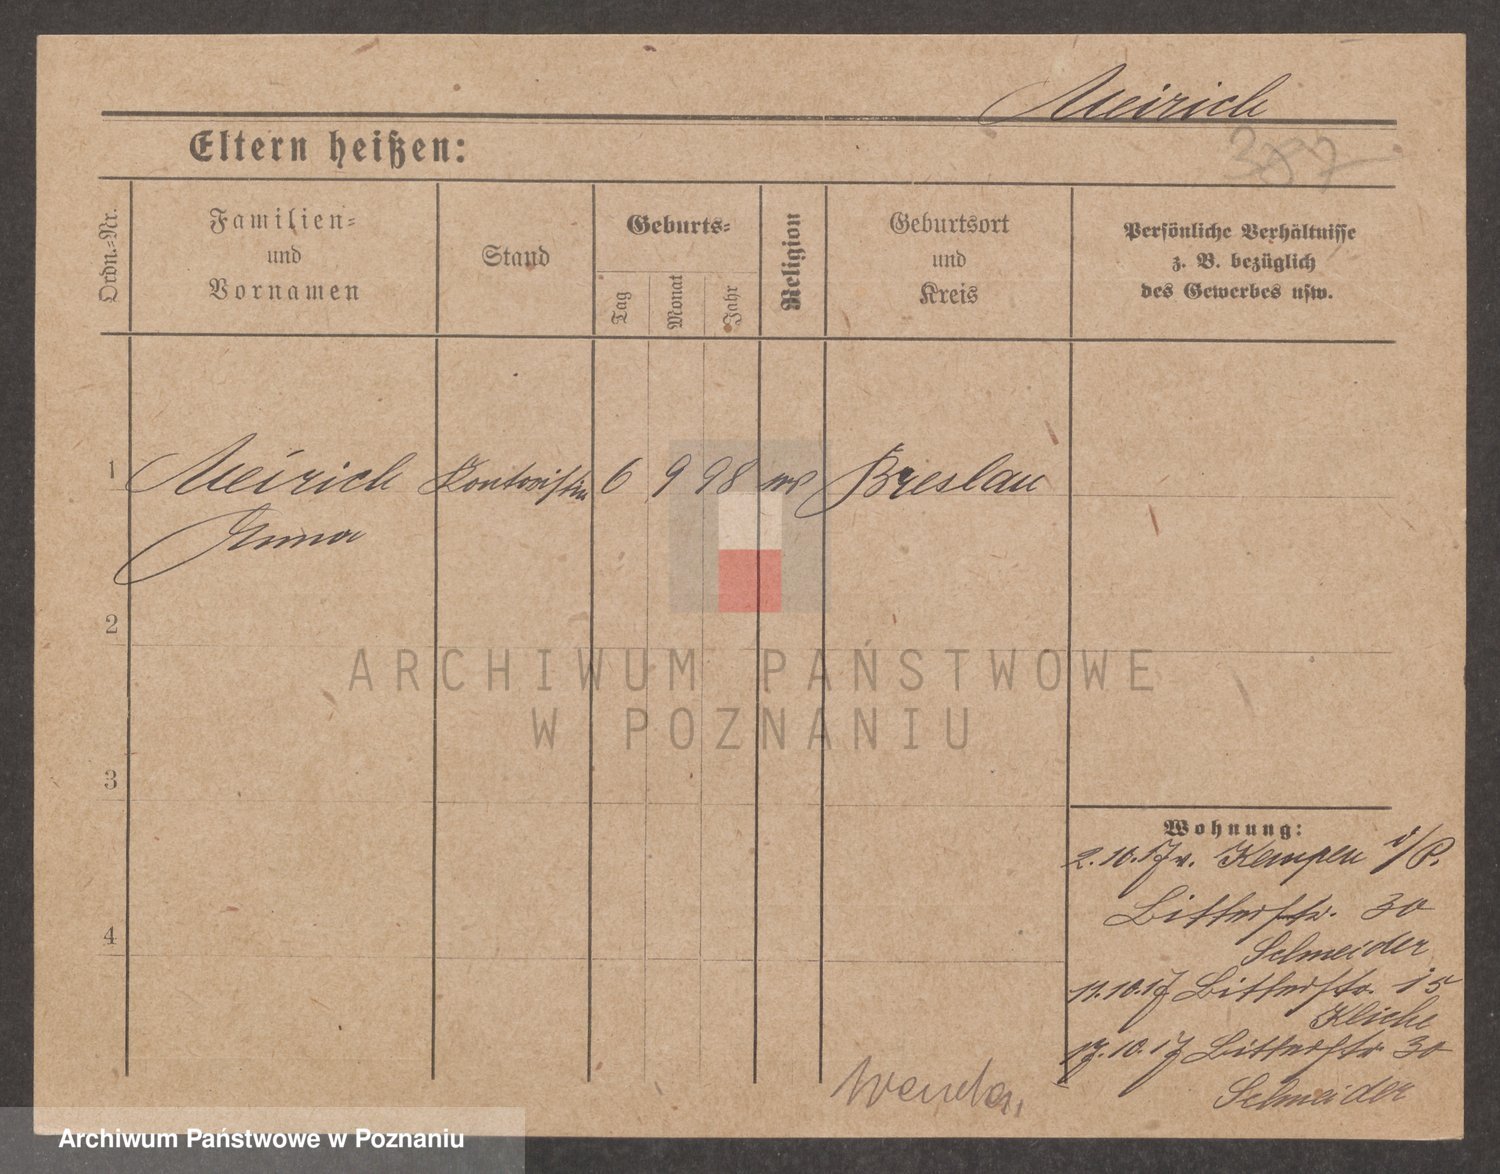 Meirich
387
Eltern heißen:
Ordn.-Nr.
Familien-
und
Vornamen
Stand
Geburts-
Tag
Monat
Jahr
Religion
Geburtsort
und
Kreis
Persönliche Verhältnisse
z. B. bezüglich
des Gewerbes usw.
1 Meirich Kontoristin 6 9 98 Breslau
2
ARCHIWUM PAŃSTWOWE
W POZNANIU
3
Wohnung:
2.10.17 v. Kempen i/P.
Bitterstr. 30
Schneider
4
11.10.17 Bitterstr. 15
Kliche
17.10.17 Bitterstr. 30
Schneider
Archiwum Państwowe w Poznaniu